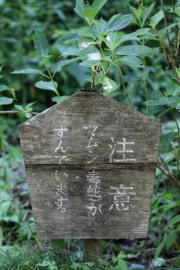 注意
マムシ、毒蛇が
すんでいます。